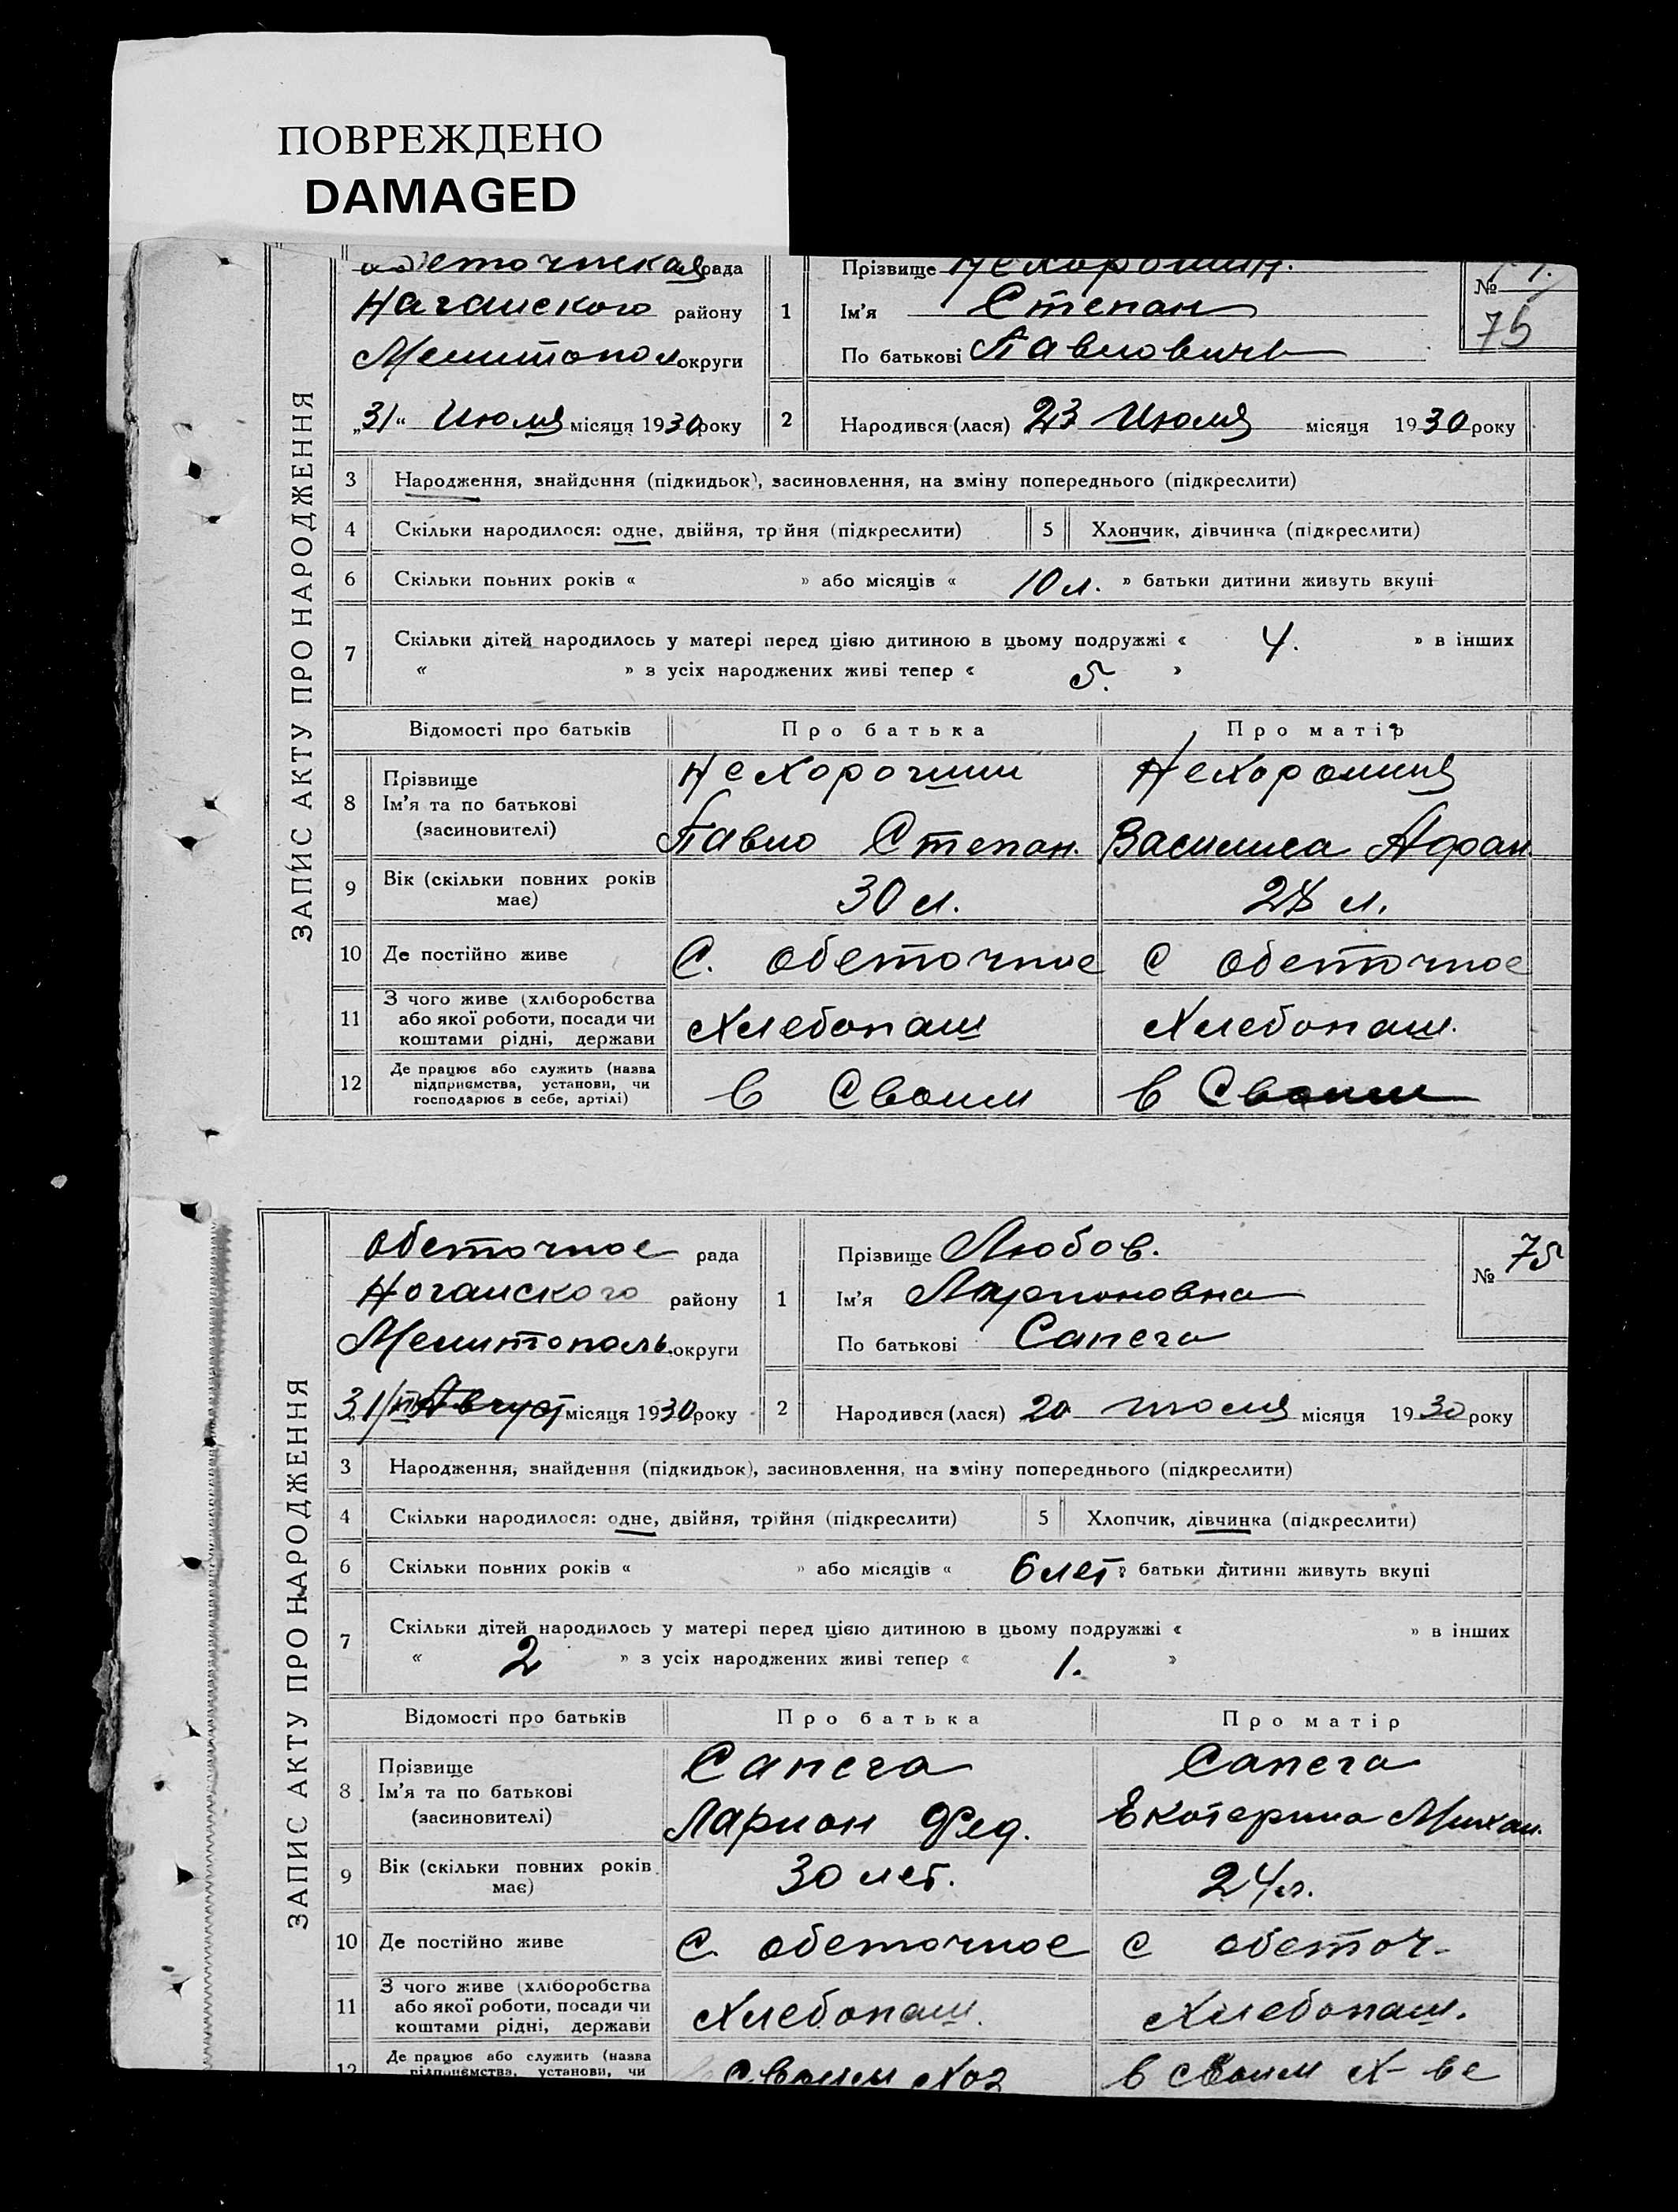 ПОВРЕЖДЕНО
DAMAGED
ЗАПИС АКТУ ПРО НАРОДЖЕННЯ
рада
Нагайского району
Мелитопол округи
„31“ Июля місяця 1930 року
1
Прізвище
Ім'я Степан
По батькові Павловичь
№
75
2 Народився (лася) 23 Июля місяця 1930 року
3 Народження, знайдення (підкидьок), засиновлення, на зміну попереднього (підкреслити)
4 Скільки народилося: одне, двійня, трійня (підкреслити) 5 Хлопчик, дівчинка (підкреслити)
6 Скільки повних років « » або місяців « 10 л. » батьки дитини живуть вкупі
7 Скільки дітей народилось у матері перед цією дитиною в цьому подружжі « 4. » в інших
« » з усіх народжених живі тепер « 5. »
Відомості про батьків Про батька Про матір
8 Прізвище
Ім'я та по батькові
(засиновителі)
Нехороший Нехорошия
Павло Степан. Василиса Афан.
9 Вік (скільки повних років має) 30 л. 28 л.
10 Де постійно живе С. Обеточное С Обеточное
11 З чого живе (хліборобства
або якої роботи, посади чи
коштами рідні, держави
Хлебопаш Хлебопаш.
12 Де працює або служить (назва
підприємства, установи, чи
господарює в себе, артілі)
в Своим в Своим
ЗАПИС АКТУ ПРО НАРОДЖЕННЯ
Обеточное рада
Ногайского району
Мелитополь. округи
31/ Август місяця 1930 року
1
Прізвище Любов.
Ім'я Ларионовна
По батькові Сапега
№ 75
2 Народився (лася) 20 июля місяця 1930 року
3 Народження, знайдення (підкидьок), засиновлення, на зміну попереднього (підкреслити)
4 Скільки народилося: одне, двійня, трійня (підкреслити) 5 Хлопчик, дівчинка (підкреслити)
6 Скільки повних років « » або місяців « 6 лет » батьки дитини живуть вкупі
7 Скільки дітей народилось у матері перед цією дитиною в цьому подружжі « » в інших
« 2 » з усіх народжених живі тепер « 1. »
Відомості про батьків Про батька Про матір
8 Прізвище
Ім'я та по батькові
(засиновителі)
Сапега Сапега
Ларион Фед. Екатерина Михаи.
9 Вік (скільки повних років має) 30 лет. 24 л.
10 Де постійно живе С. Обеточное С обеточ.
11 З чого живе (хліборобства
або якої роботи, посади чи
коштами рідні, держави
Хлебопаш. Хлебопаш.
12 Де працює або служить (назва
підприємства, установи, чи
своим хоз в своим х-ве